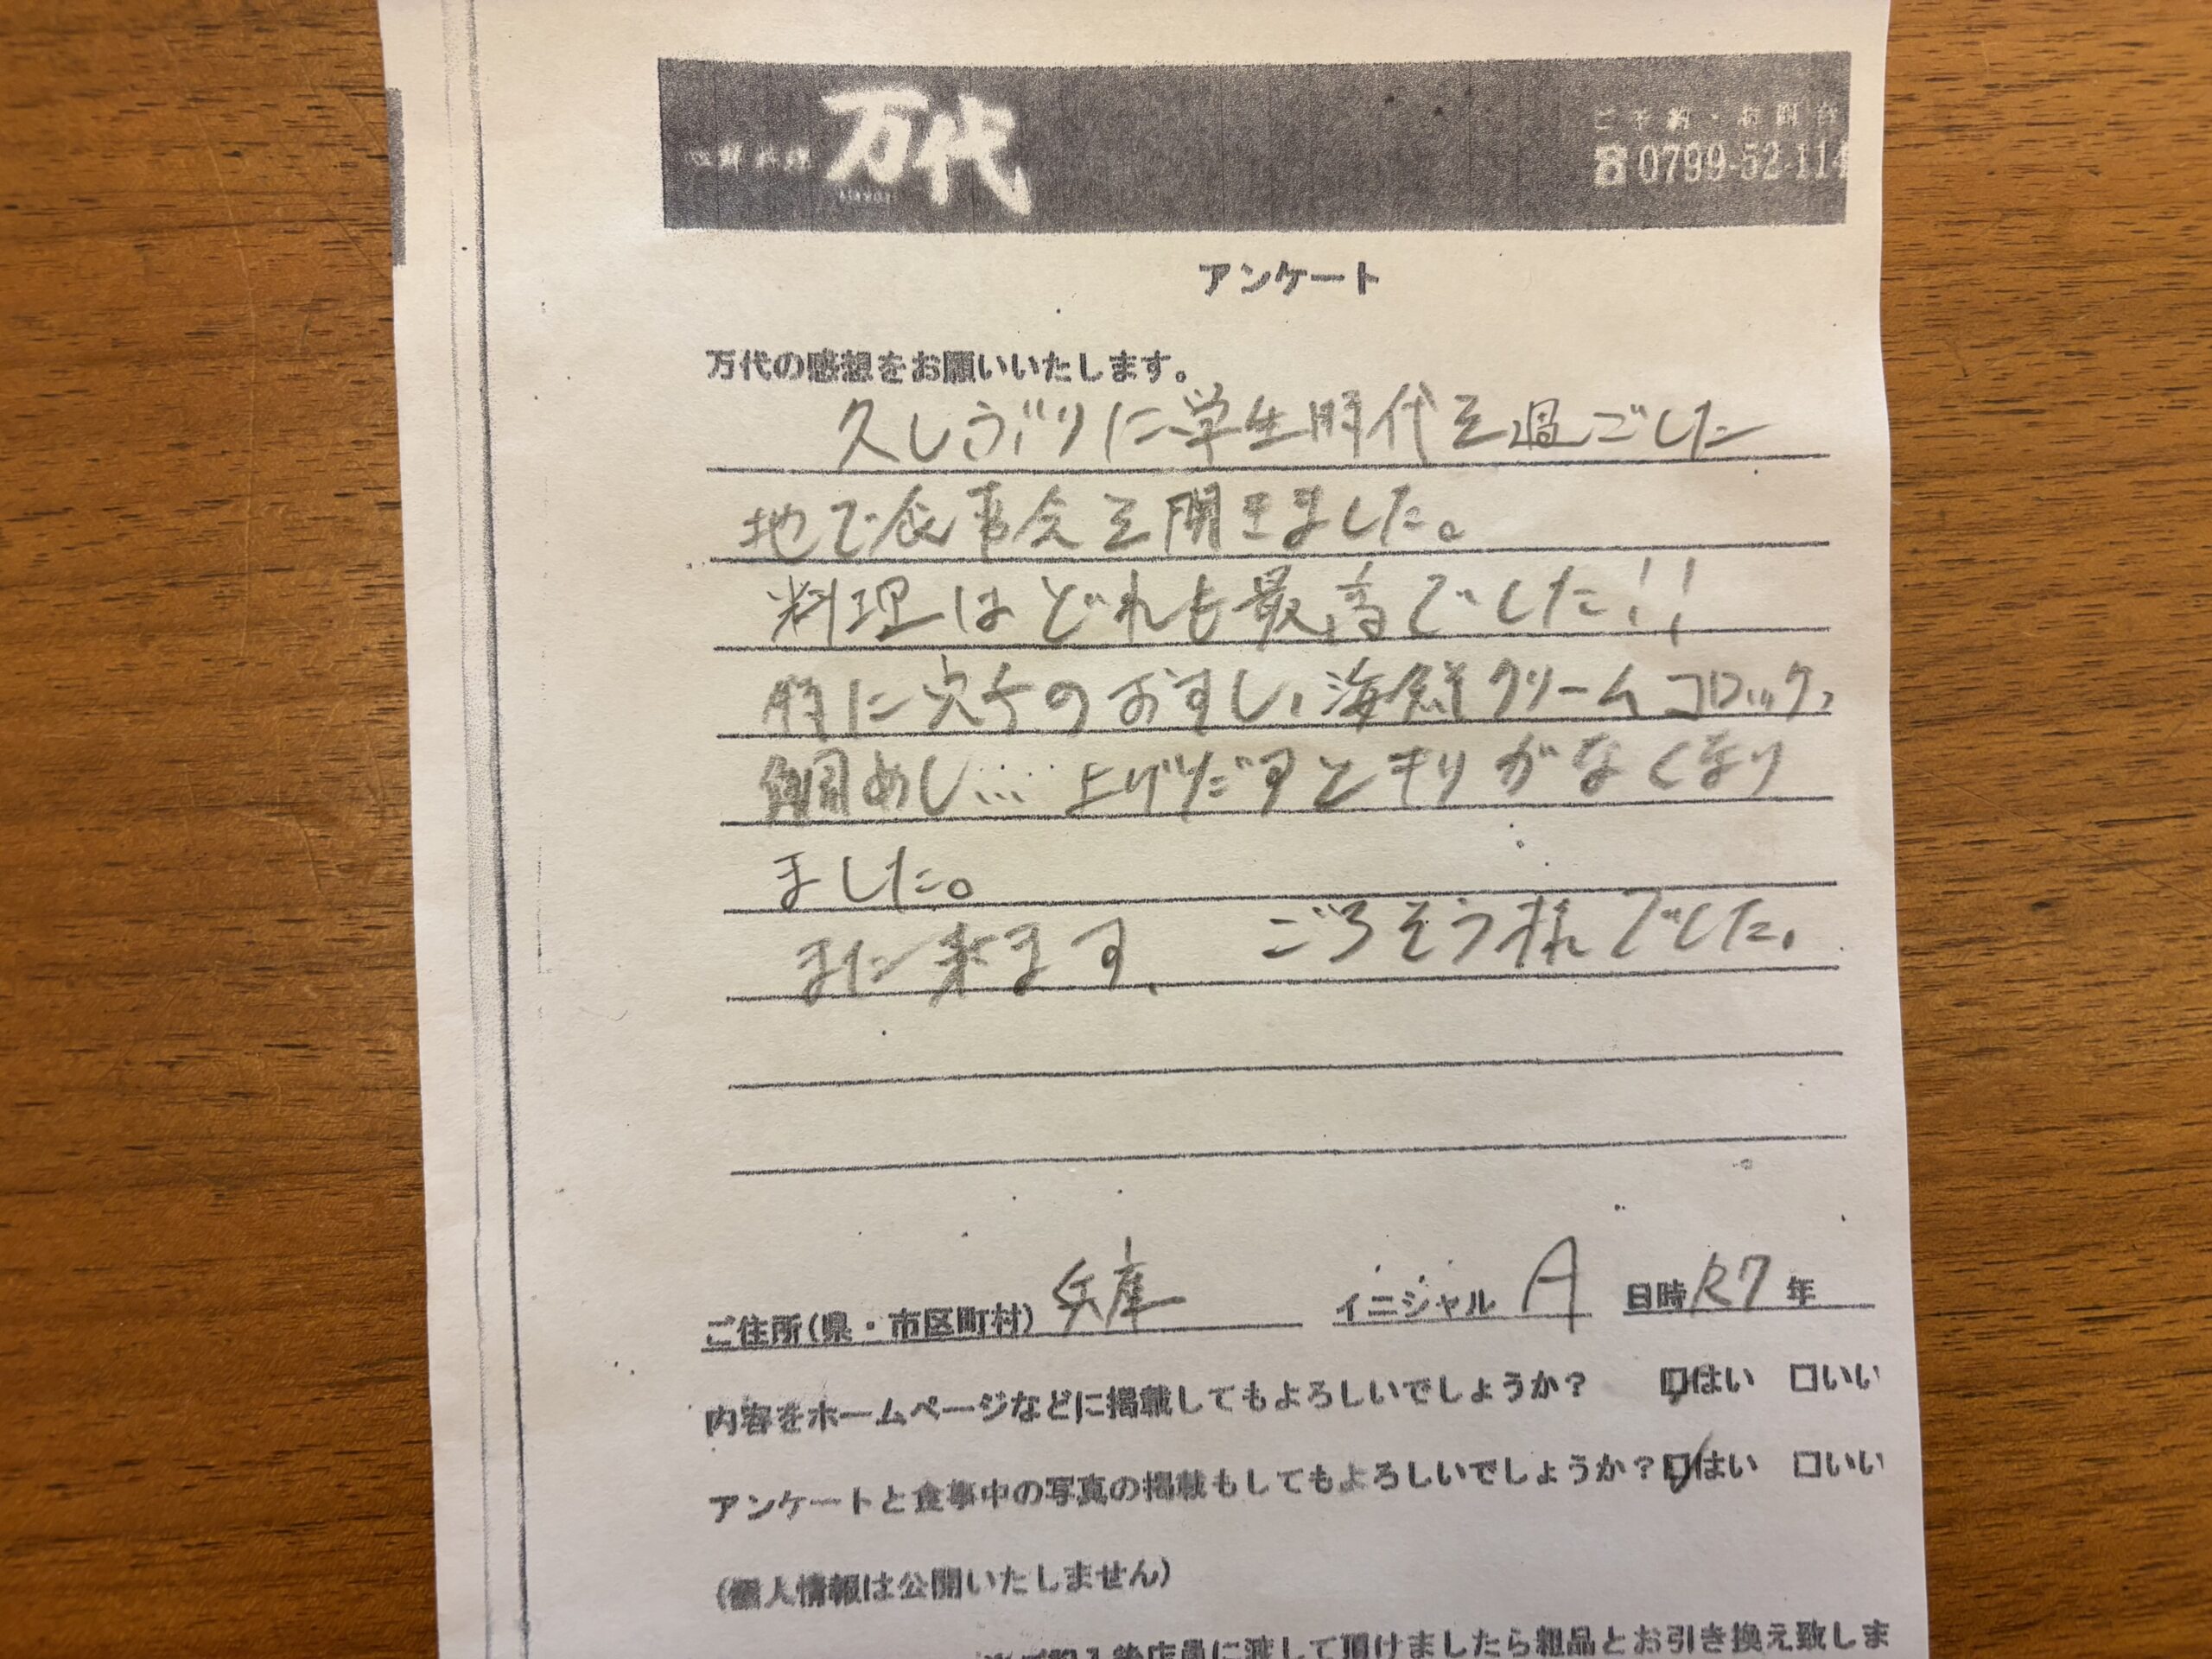 万代
ご予約・お問合
☎0799-52-114
アンケート
万代の感想をお願いいたします。
久しぶりに学生時代を過ごした
地で食事会を開きました。
料理はどれも最高でした!!
特に穴子のおすし、海鮮クリームコロッケ、
鯛めし……上げだすときりがなくなり
ました。
また来ます、 ごちそう様でした。
ご住所(県・市区町村) 兵庫 イニシャル A 日時 R7 年
内容をホームページなどに掲載してもよろしいでしょうか? ☑はい □いい
アンケートと食事中の写真の掲載もしてもよろしいでしょうか? ☑はい □いい
(個人情報は公開いたしません)
ご記入後店員に渡して頂けましたら粗品とお引き換え致しま